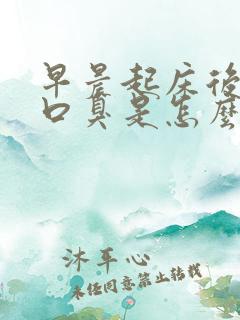 早晨起床後
口臭是怎麼
沐平心
未经同意禁止转载